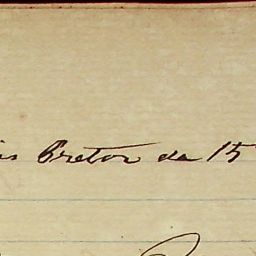 is Pretor da 15